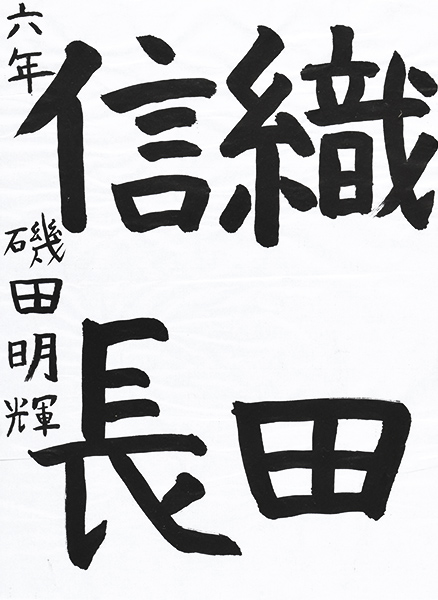 織田
信長
六年
磯田明輝